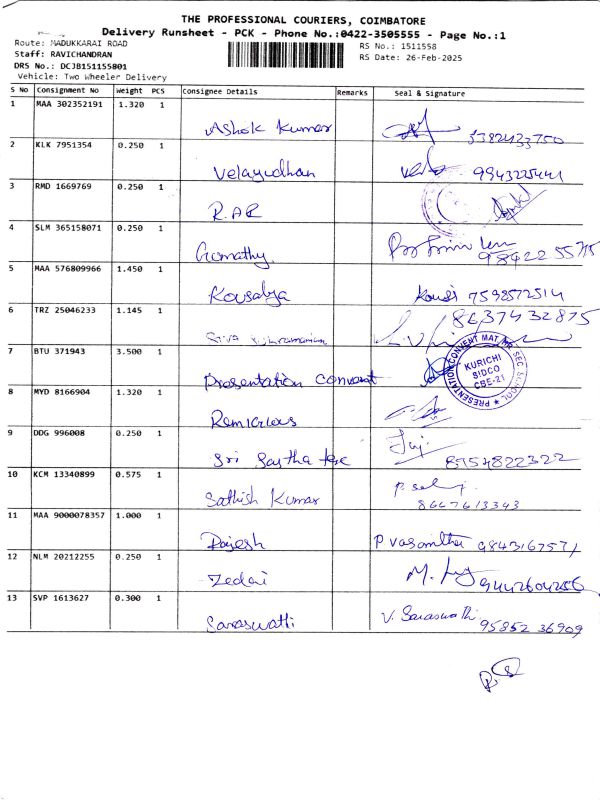 THE PROFESSIONAL COURIERS, COIMBATORE
Delivery Runsheet - PCK - Phone No.:0422-3505555 - Page No.:1
Route: MADUKKARAI ROAD
RS No.: 1511558
Staff: RAVICHANDRAN
RS Date: 26-Feb-2025
DRS No.: DCJB151155801
Vehicle: Two Wheeler Delivery
S No Consignment No Weight PCS Consignee Details Remarks Seal & Signature
1 MAA 302352191 1.320 1
Ashok Kumar
2 KLK 7951354 0.250 1
Velayudhan 9943225441
3 RMD 1669769 0.250 1
R.AR
4 SLM 365158071 0.250 1
Gomathy 98422 55715
5 MAA 576809966 1.450 1
Kousalya Kousi 7598572514
6 TRZ 25046233 1.145 1 8637432815
Siva
7 BTU 371943 3.500 1
Presentation Convent
PRESENTATION CONVENT MAT. HR SEC SCHOOL
KURICHI
SIDCO
CBE-21
8 MYD 8166904 1.320 1
9 DDG 996008 0.250 1
Sri 8754822322
10 KCM 13340899 0.575 1
Sathish Kumar 8667613343
11 MAA 9000078357 1.000 1
Rajesh P Vasantha 9843167571
12 NLM 20212255 0.250 1
9442604256
13 SVP 1613627 0.300 1
Saraswathi V. Saraswathi 95852 36909